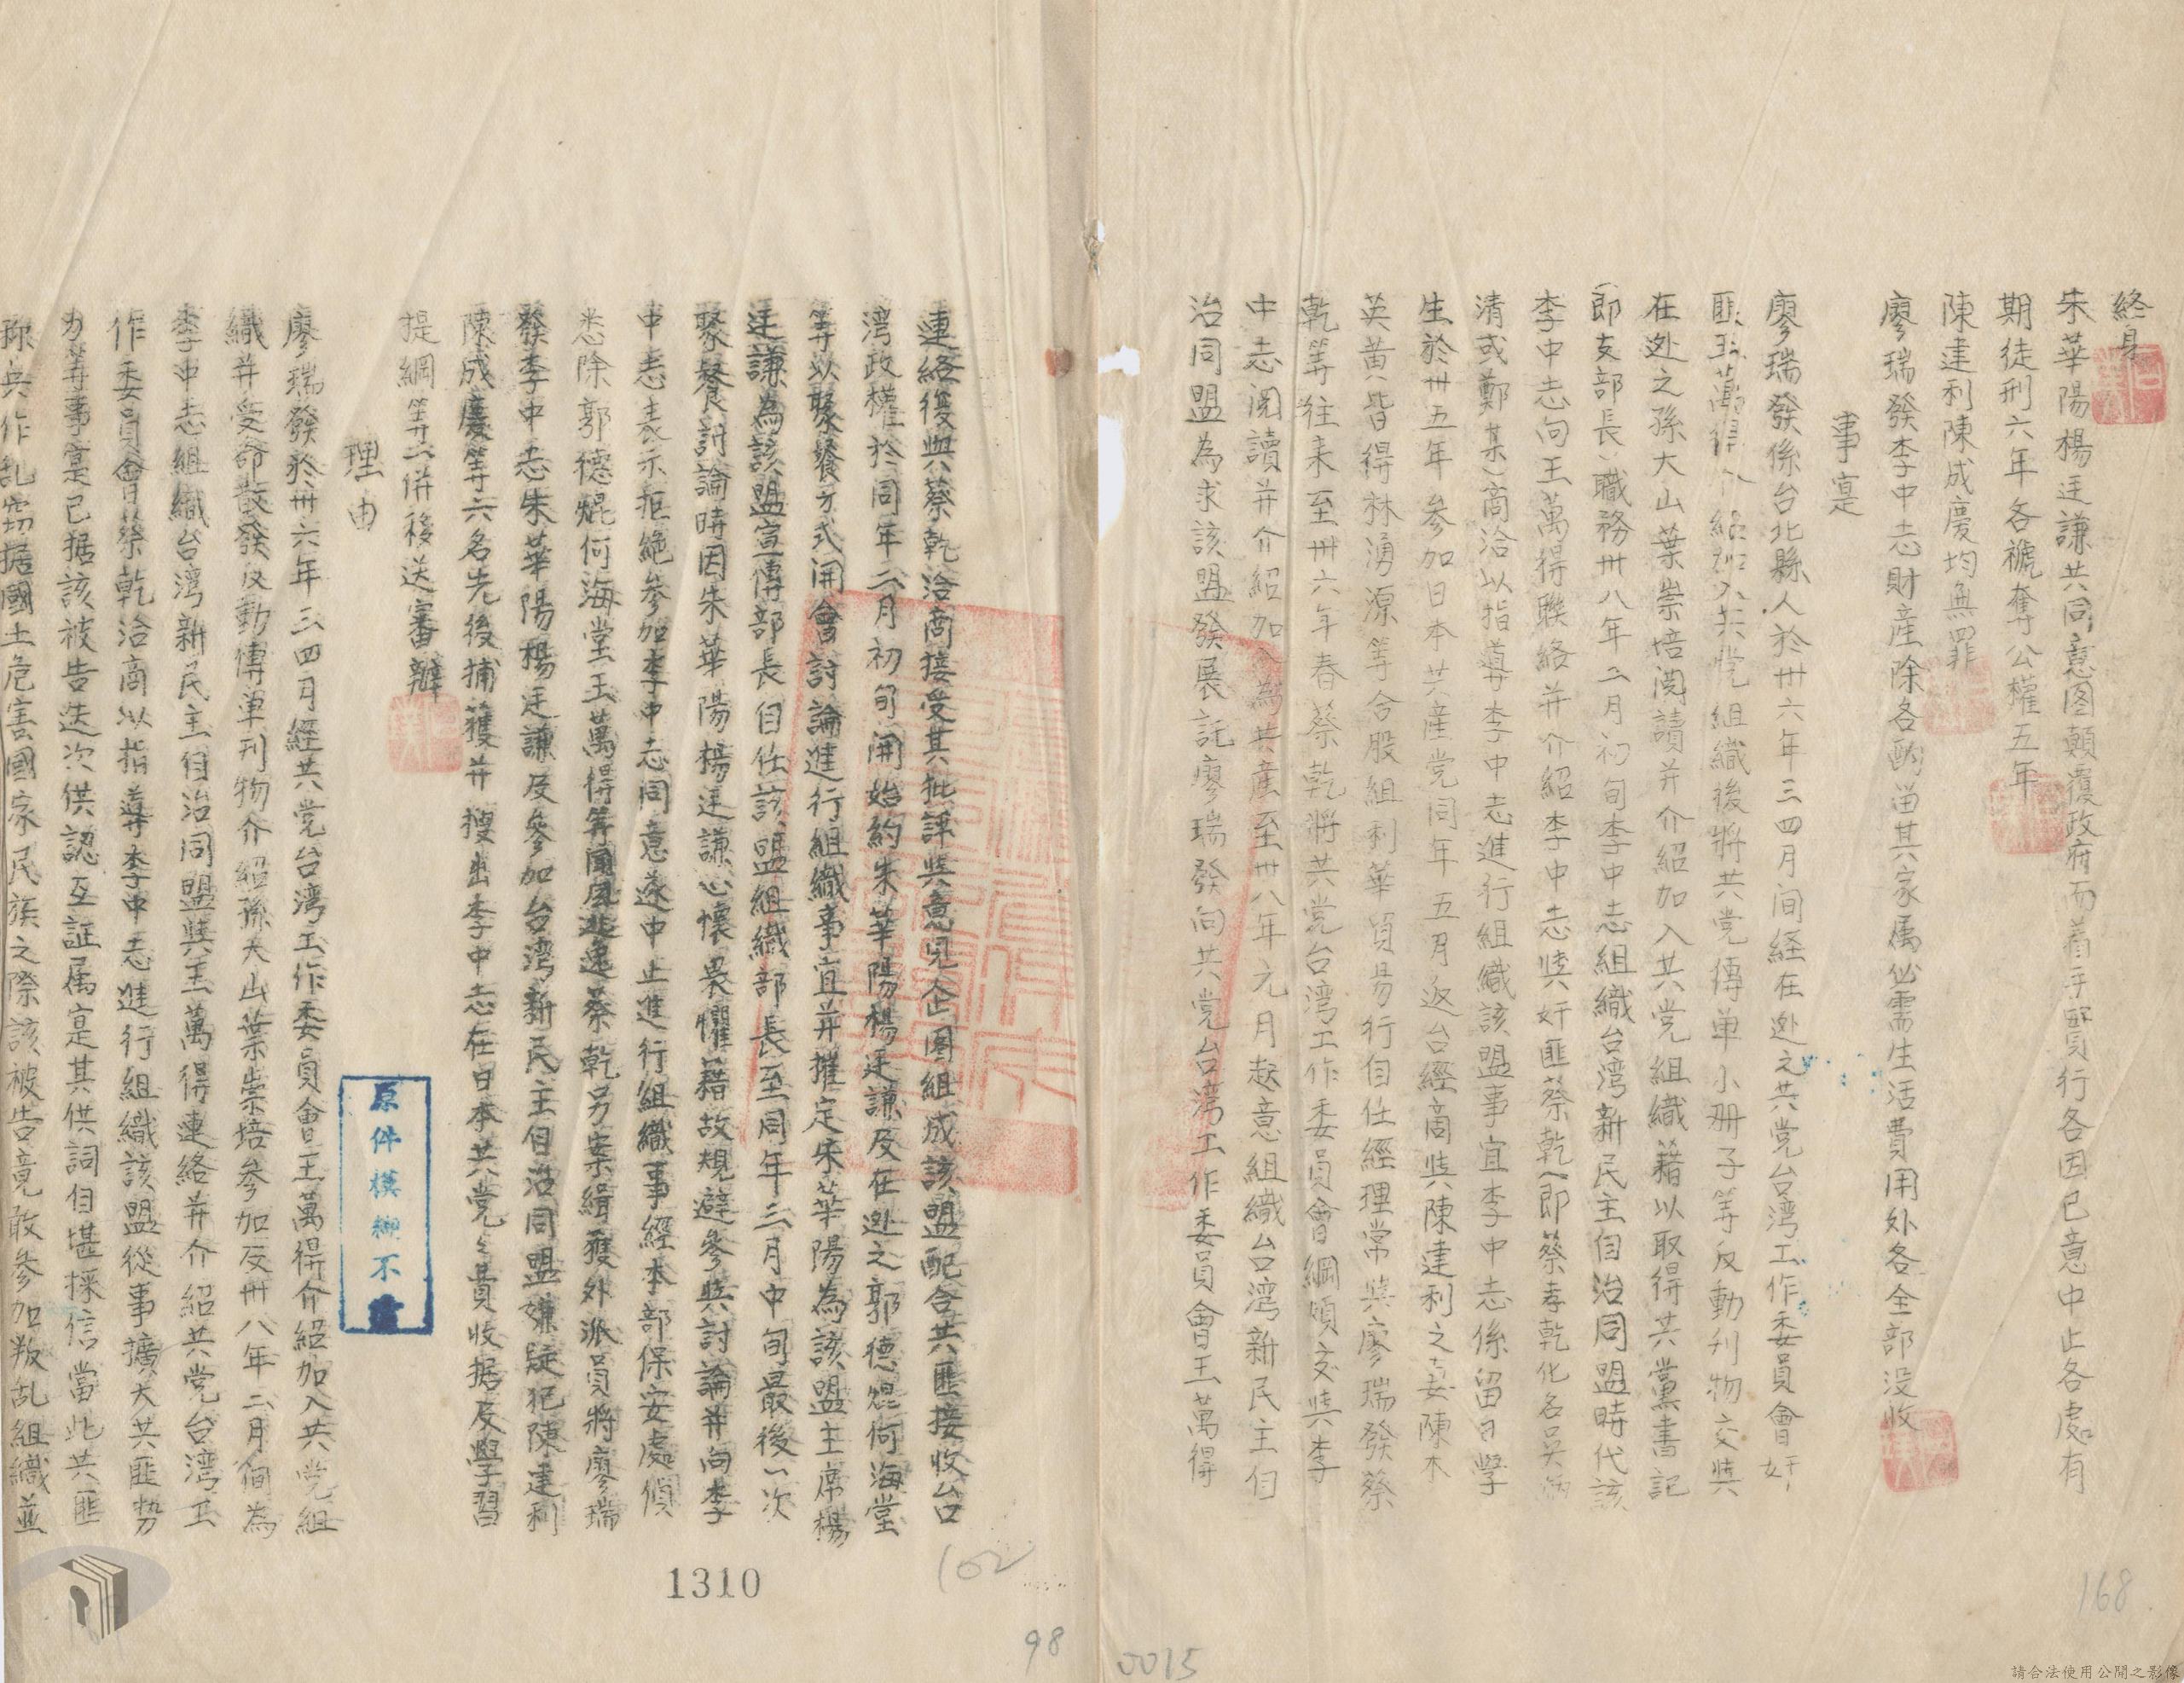 終身
朱華陽楊廷謙共同意图顛覆政府而着手實行各因己意中止各處有
期徒刑六年各褫奪公權五年
陳建利陳成慶均無罪
廖瑞發李中志財產除各酌留其家属必需生活費用外各全部没收
事寔
廖瑞發係台北縣人於卅六年三四月间経在逃之共党台湾工作委員會奸
匪王萬得介紹加入共党組織後將共党傳单小册子等反動刊物交與
在逃之孫大山葉崇培閲讀并介紹加入共党組織藉以取得共黨書記
(即支部長)職務卅八年二月初旬李中志組織台湾新民主自治同盟時代該
李中志向王萬得聯絡并介紹李中志與奸匪蔡乾(即蔡孝乾化名吴
清或鄭某)商洽以指導李中志進行組織該盟事宜李中志係留日學
生於卅五年參加日本共產党同年五月返台經商與陳建利之妻陳木
英黄皆得林湧源等合股組利華貿易行自任經理常與廖瑞發蔡
乾等往来至卅六年春蔡乾將共党台湾工作委員會綱領交與李
中志閲讀并介紹加入為共產至卅八年元月起意組織台湾新民主自
治同盟為求該盟發展託廖瑞發向共党台湾工作委員會王萬得
連絡後與蔡乾洽商接受其批評與意見企图組成該盟配合共匪接收台
湾政權於同年二月初旬開始約朱華陽楊廷謙及在逃之郭德焜何海堂
等以聚餐方式開會討論進行組織事宜并摧定朱華陽為該盟主席楊
廷謙為該盟宣傳部長自任該盟組織部長至同年三月中旬最後一次
聚餐討論時因朱華陽楊廷謙心懷畏懼藉故規避參與討論并向李
中志表示拒絶參加李中志同意遂中止進行組織事經本部保安處偵
悉除郭德焜何海堂王萬得等聞風逃逸蔡乾另案緝獲外派員將廖瑞
發李中志朱華陽楊廷謙及參加台湾新民主自治同盟嫌疑犯陳建利
陳成慶等六名先後捕獲并搜出李中志在日本共党党費收据及學習
提綱等一併移送審辦
理由
廖瑞發於卅六年三四月經共党台湾工作委員會王萬得介紹加入共党組
織并受命散發反動傳单刊物介紹孫大山葉崇培參加反卅八年二月间為
李中志組織台湾新民主自治同盟與王萬得連絡并介紹共党台湾工
作委員會蔡乾洽商以指導李中志進行組織該盟從事擴大共匪势
力等事寔已据該被告迭次供認互証属寔其供詞自堪採信當此共匪
称兵作乱窃据國土危害國家民族之際該被告竟敢參加叛乱組織並
原件模糊不清
1310
102
98
0015
168
請合法使用公開之影像